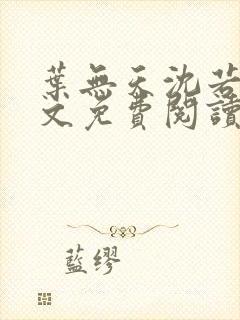 葉無天沈若
文免費閱讀
藍繆